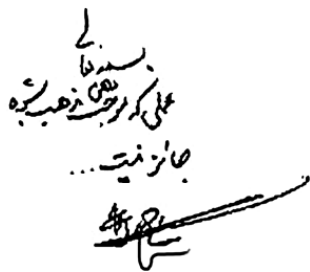 بسمه تعالی
عملی که موجب وهن مذهب شود
جائز نیست...